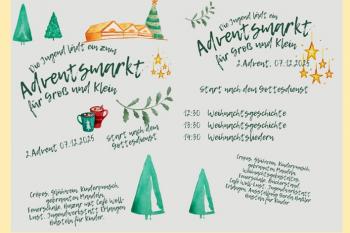 Die Jugend lädt ein zum
Adventsmarkt
für Groß und Klein
2.Advent 07.12.2025
Start nach dem
Gottesdienst
Crêpes, Glühwein, Kinderpunsch,
gebrannten Mandeln,
Feuerschale, Bazar mit Café Woll-
Lust, Jugendwerkstatt Erlangen,
Basteln für Kinder
Die Jugend lädt ein
Adventsmarkt
für Groß und Klein
2.Advent, 07.12.2025
Start nach dem Gottesdienst
12:30 Weihnachtsgeschichte
13:30 Weihnachtsgeschichte
14:30 Weihnachtsliedern
Crêpes, Glühwein, Kinderpunsch,
gebrannten Mandeln,
Weihnachtsgeschichten,
Feuerschale,
Café Woll-Lust, Jugendwerkstatt
Erlangen,
Basteln für Kinder